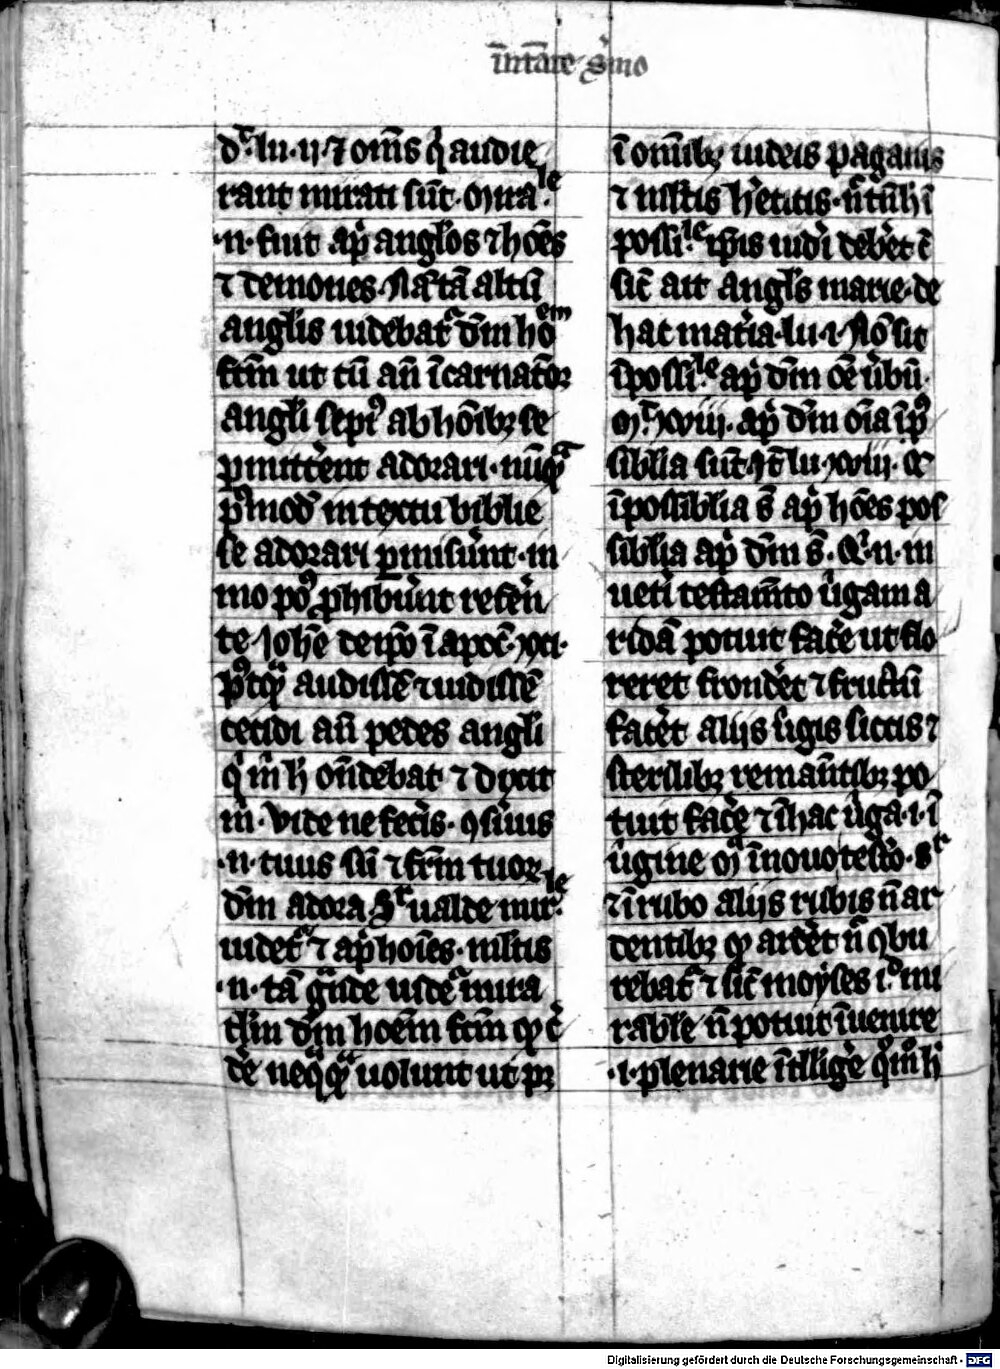 īntāre s̄mo
dr̄. lu. ij. ⁊ om̄s q̇ audie
rant mirati sūt. Mirale.
.n. fuit ap̄ anglos ⁊ hōēs
⁊ demones. Nā tā altū
anglis uidebatᷣ dm̄ hōem
fcm̄ ut cū an̄ īcarnatōꝫ
angli sepeꝰ ab hōībꝫ se
pmittēent adorari. nūqᷓ
pꝰmodū in textu biblie
se adorari pmisūnt. im
mo poꝰ phibūnt refeīn
te Johē de ip̄o ī apoc̄. xxi.
Pꝰtqᷓ audissē ⁊ uidissē
cecidi an̄ pedes angli
q̇ m̄ h̄ on̄debat ⁊ dixit
m̄. Vide ne fecīs. ꝯsūus
.n. tuus sū ⁊ frm̄ tuoꝝ
dm̄ adora. Sꝫ ualde mirle.
uidetᷣ ⁊ ap̄ hoīes. nīstis
.n. tā gᷓnde uidetᷣ mira
clm̄ dm̄ hoēm fcm̄ ꝙ c̄
de neqᷓqᷓ uolunt ut pꝫ
ī om̄ibꝫ iudeis paganis
⁊ iīstis hēticis. n̄ tn̄ h̄ ī
possi.le ip̄is iudī debēt cē
sic̄ ait angls marie. de
hac matīa. lu. i. Nō sit
īpossi.le ap̄ dm̄ om̄e ūbū.
Mᷓ. xviii. ap̄ dm̄ oīa īpoꝰ
sibilia sūt. Itē lu. xviii. Q̄
īpossibilia s̄ ap̄ hōēs pos
sibilia ap̄ dm̄ s̄. Q̇. n. in
uetī testam̄to ūgam a
ridā potuit facē ut flo
reret frondēt ⁊ fructū
facēt aliis ūgis siccis ⁊
sterilibꝫ reman̄tibꝫ po
tuit facē ⁊ ī hac ūga .i. ī
ūgine M̄ ī nouo testō. Sꝫ
⁊ ī rubo aliis rubis n̄ ar
dentibꝫ ꝙ ardēt n̄ ꝯbu
rebatᷣ ⁊ sic̄ moyses id mi
rable n̄ potuit īuenire
.i. plenarie ītelligē q̇m̄ h̄
Digitalisierung gefördert durch die Deutsche Forschungsgemeinschaft - DFG